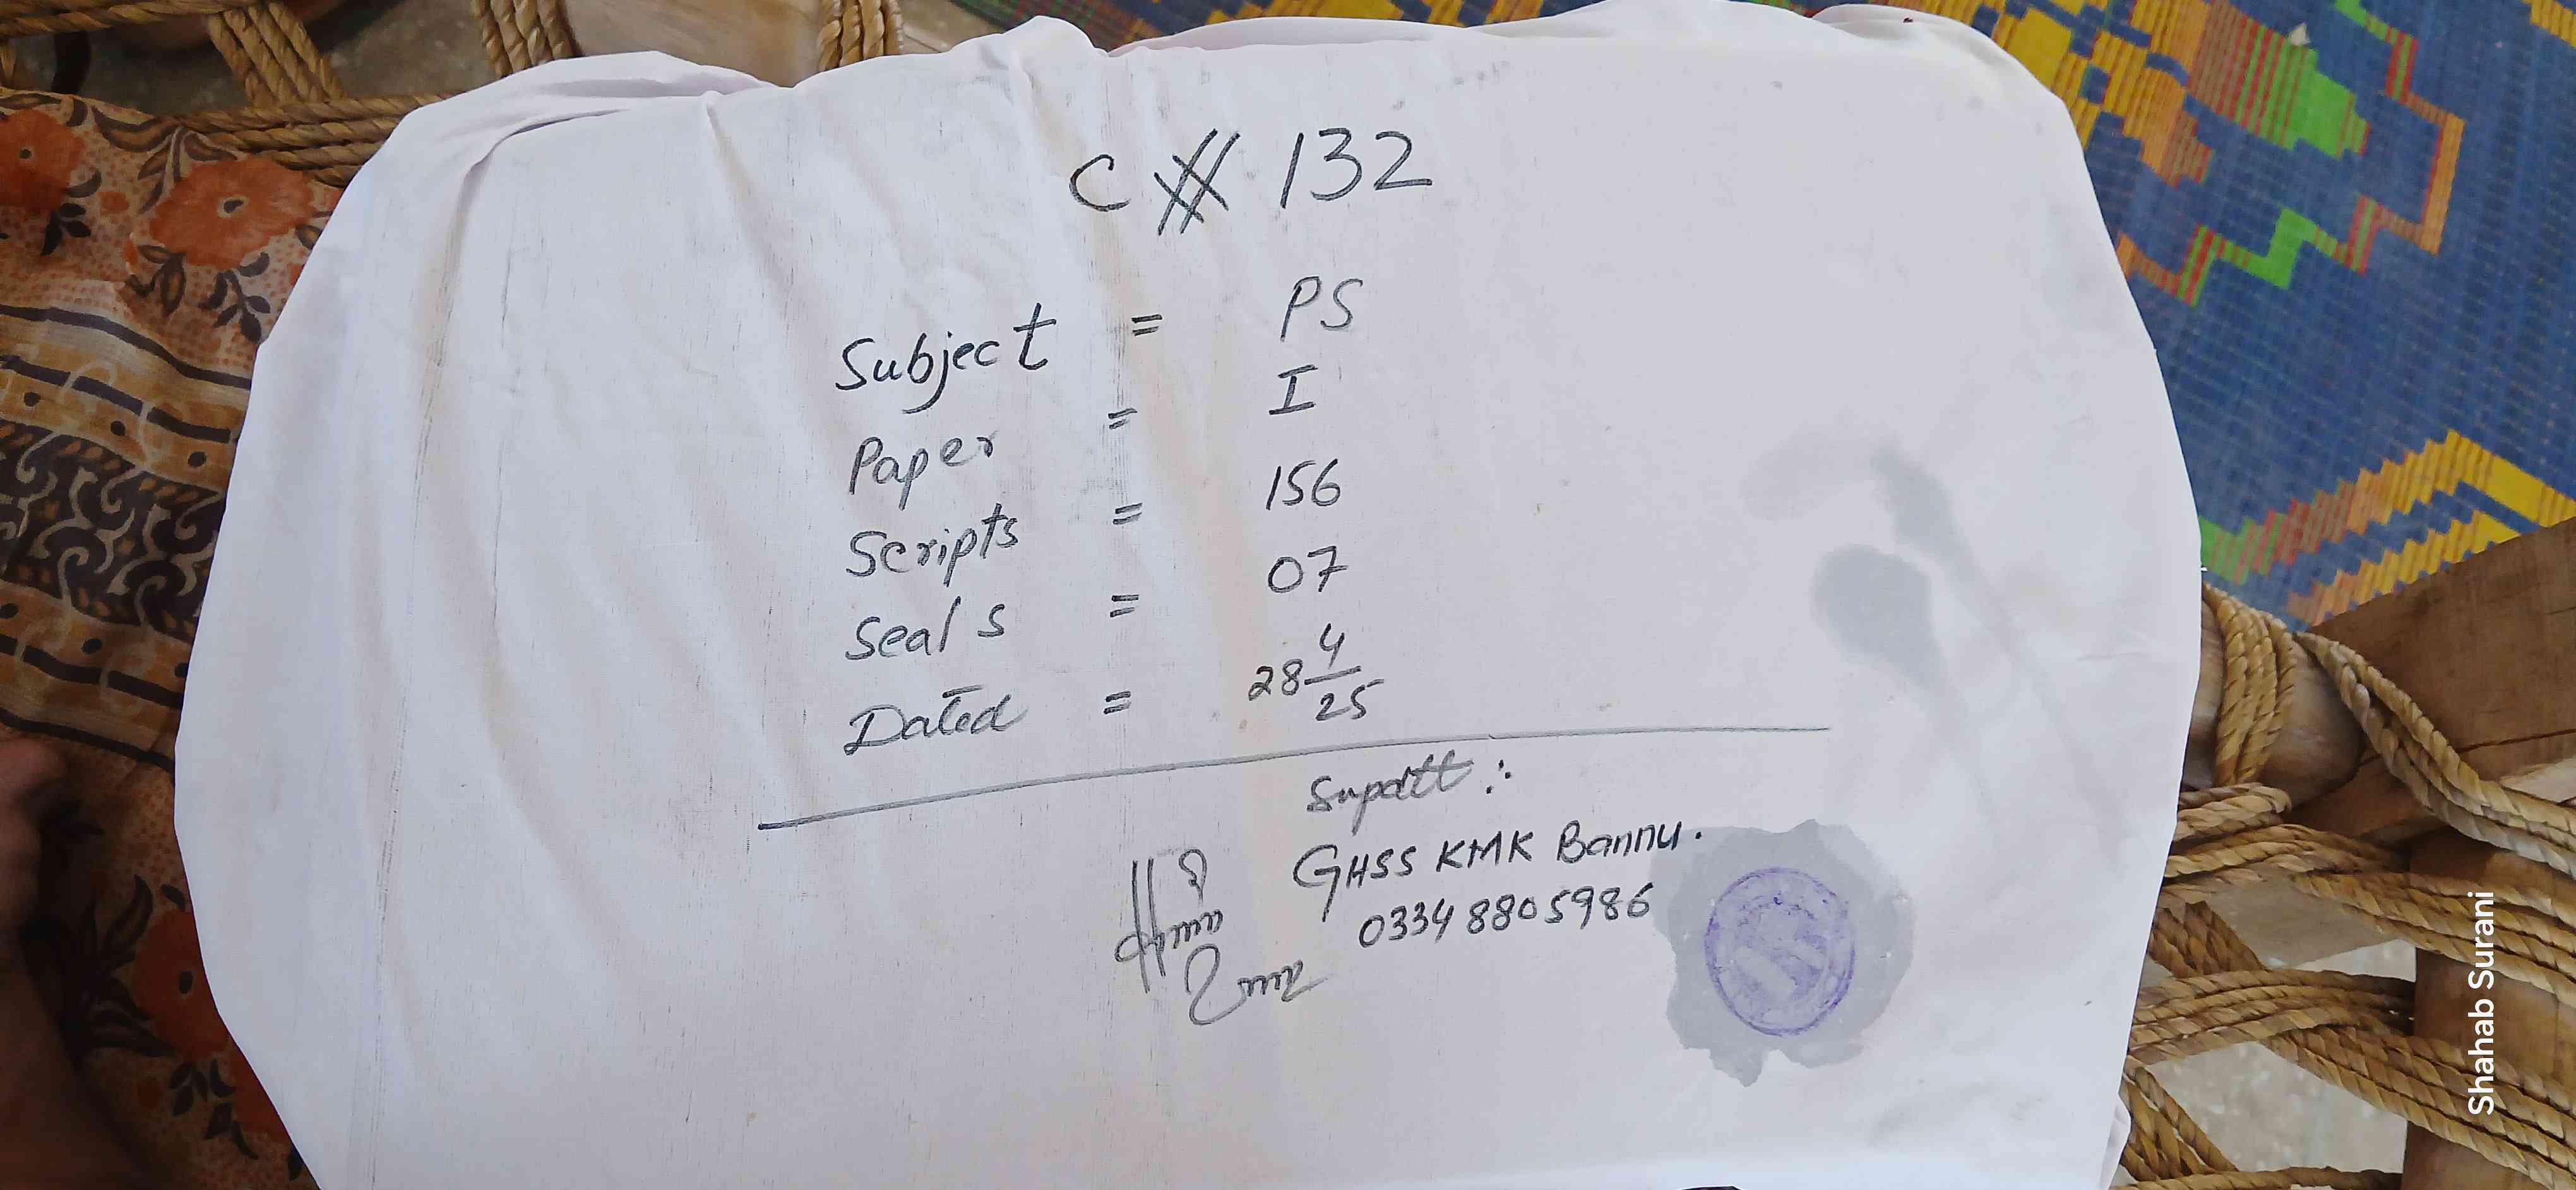 C # 132
Subject = PS
Paper = I
Scripts = 156
Seals = 07
Dated = 28 4/25
Supdtt :
GHSS KMK Bannu.
03348805986
Shahab Surani